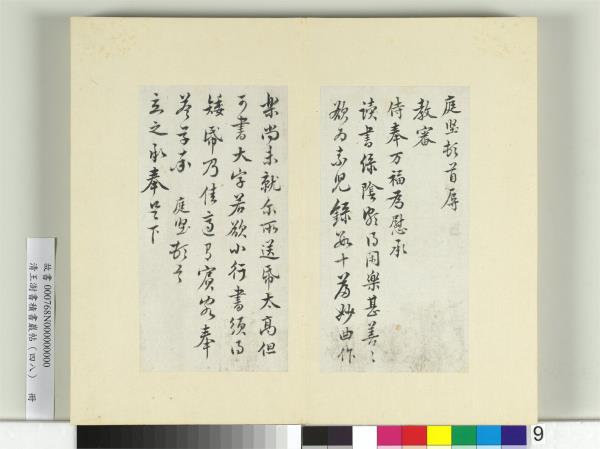 庭堅頓首辱
教審
侍奉万福為慰承
讀書綠陰頗得閑樂甚善〻
欲為素兒錄數十篇妙曲作
樂尚未就尔所送紙太高但
可書大字若欲小行書須得
矮紙乃佳適有賓客奉
答草率 庭堅頓首
立之承奉足下
故書 000768N000000000
清王澍書積書巖帖(四八) 冊
9